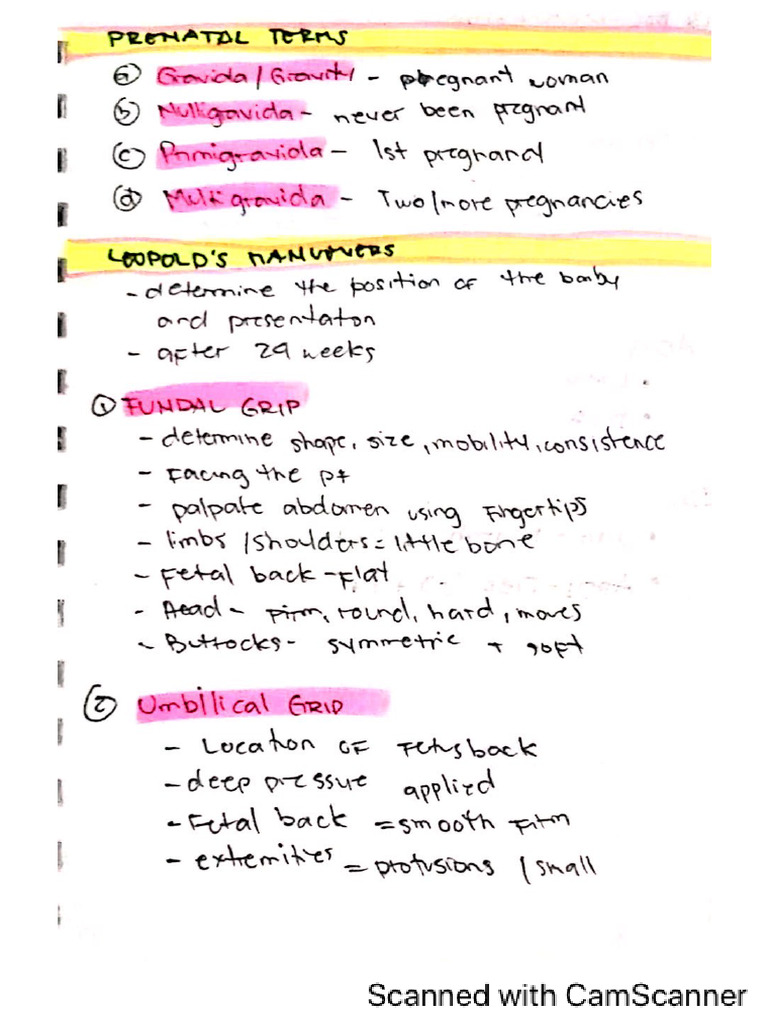 PRENATAL TERMS
ⓐ Gravida/Gravity - pregnant woman
ⓑ Nulligavida - never been pregnant
ⓒ Primigravida - 1st pregnancy
ⓓ Multigravida - Two/more pregnancies
LEOPOLD'S MANUVERS
- determine the position of the baby
and presentaton
- after 24 weeks
① FUNDAL GRIP
- determine shape, size, mobility, consistence
- Facing the pt
- palpate abdomen using Fingertips
- limbs/shoulders = little bone
- Fetal back - Flat
- Head - Firm, round, hard, moves
- Buttocks - symmetric + soft
② Umbilical GRIP
- Location OF Fetus back
- deep pressure applied
- Fetal back = smooth Firm
- extemities = protusions / small
Scanned with CamScanner